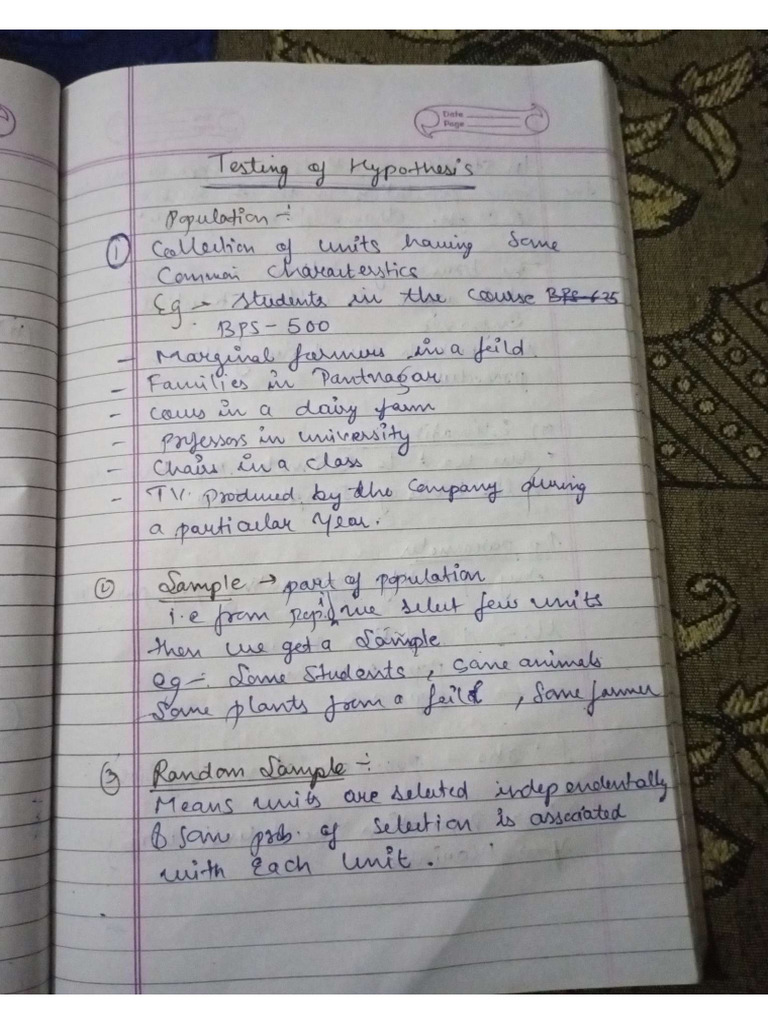 Date
Page
Testing of Hypothesis
Population :-
① Collection of units having some
Common characterstics
Eg - students in the course BPS-625
BPS - 500
- Marginal farmers in a feild
- Families in Pantnagar
- cows in a dairy farm
- professors in university
- Chairs in a class
- T.V. produced by the Company during
a particular year.
② Sample → part of population
i.e from popn we select few units
then we get a sample
eg - Some students, some animals
Some plants from a feild, Some farmer
③ Random Sample :-
Means units are selected independentally
& some prob. of selection is associated
with each unit.